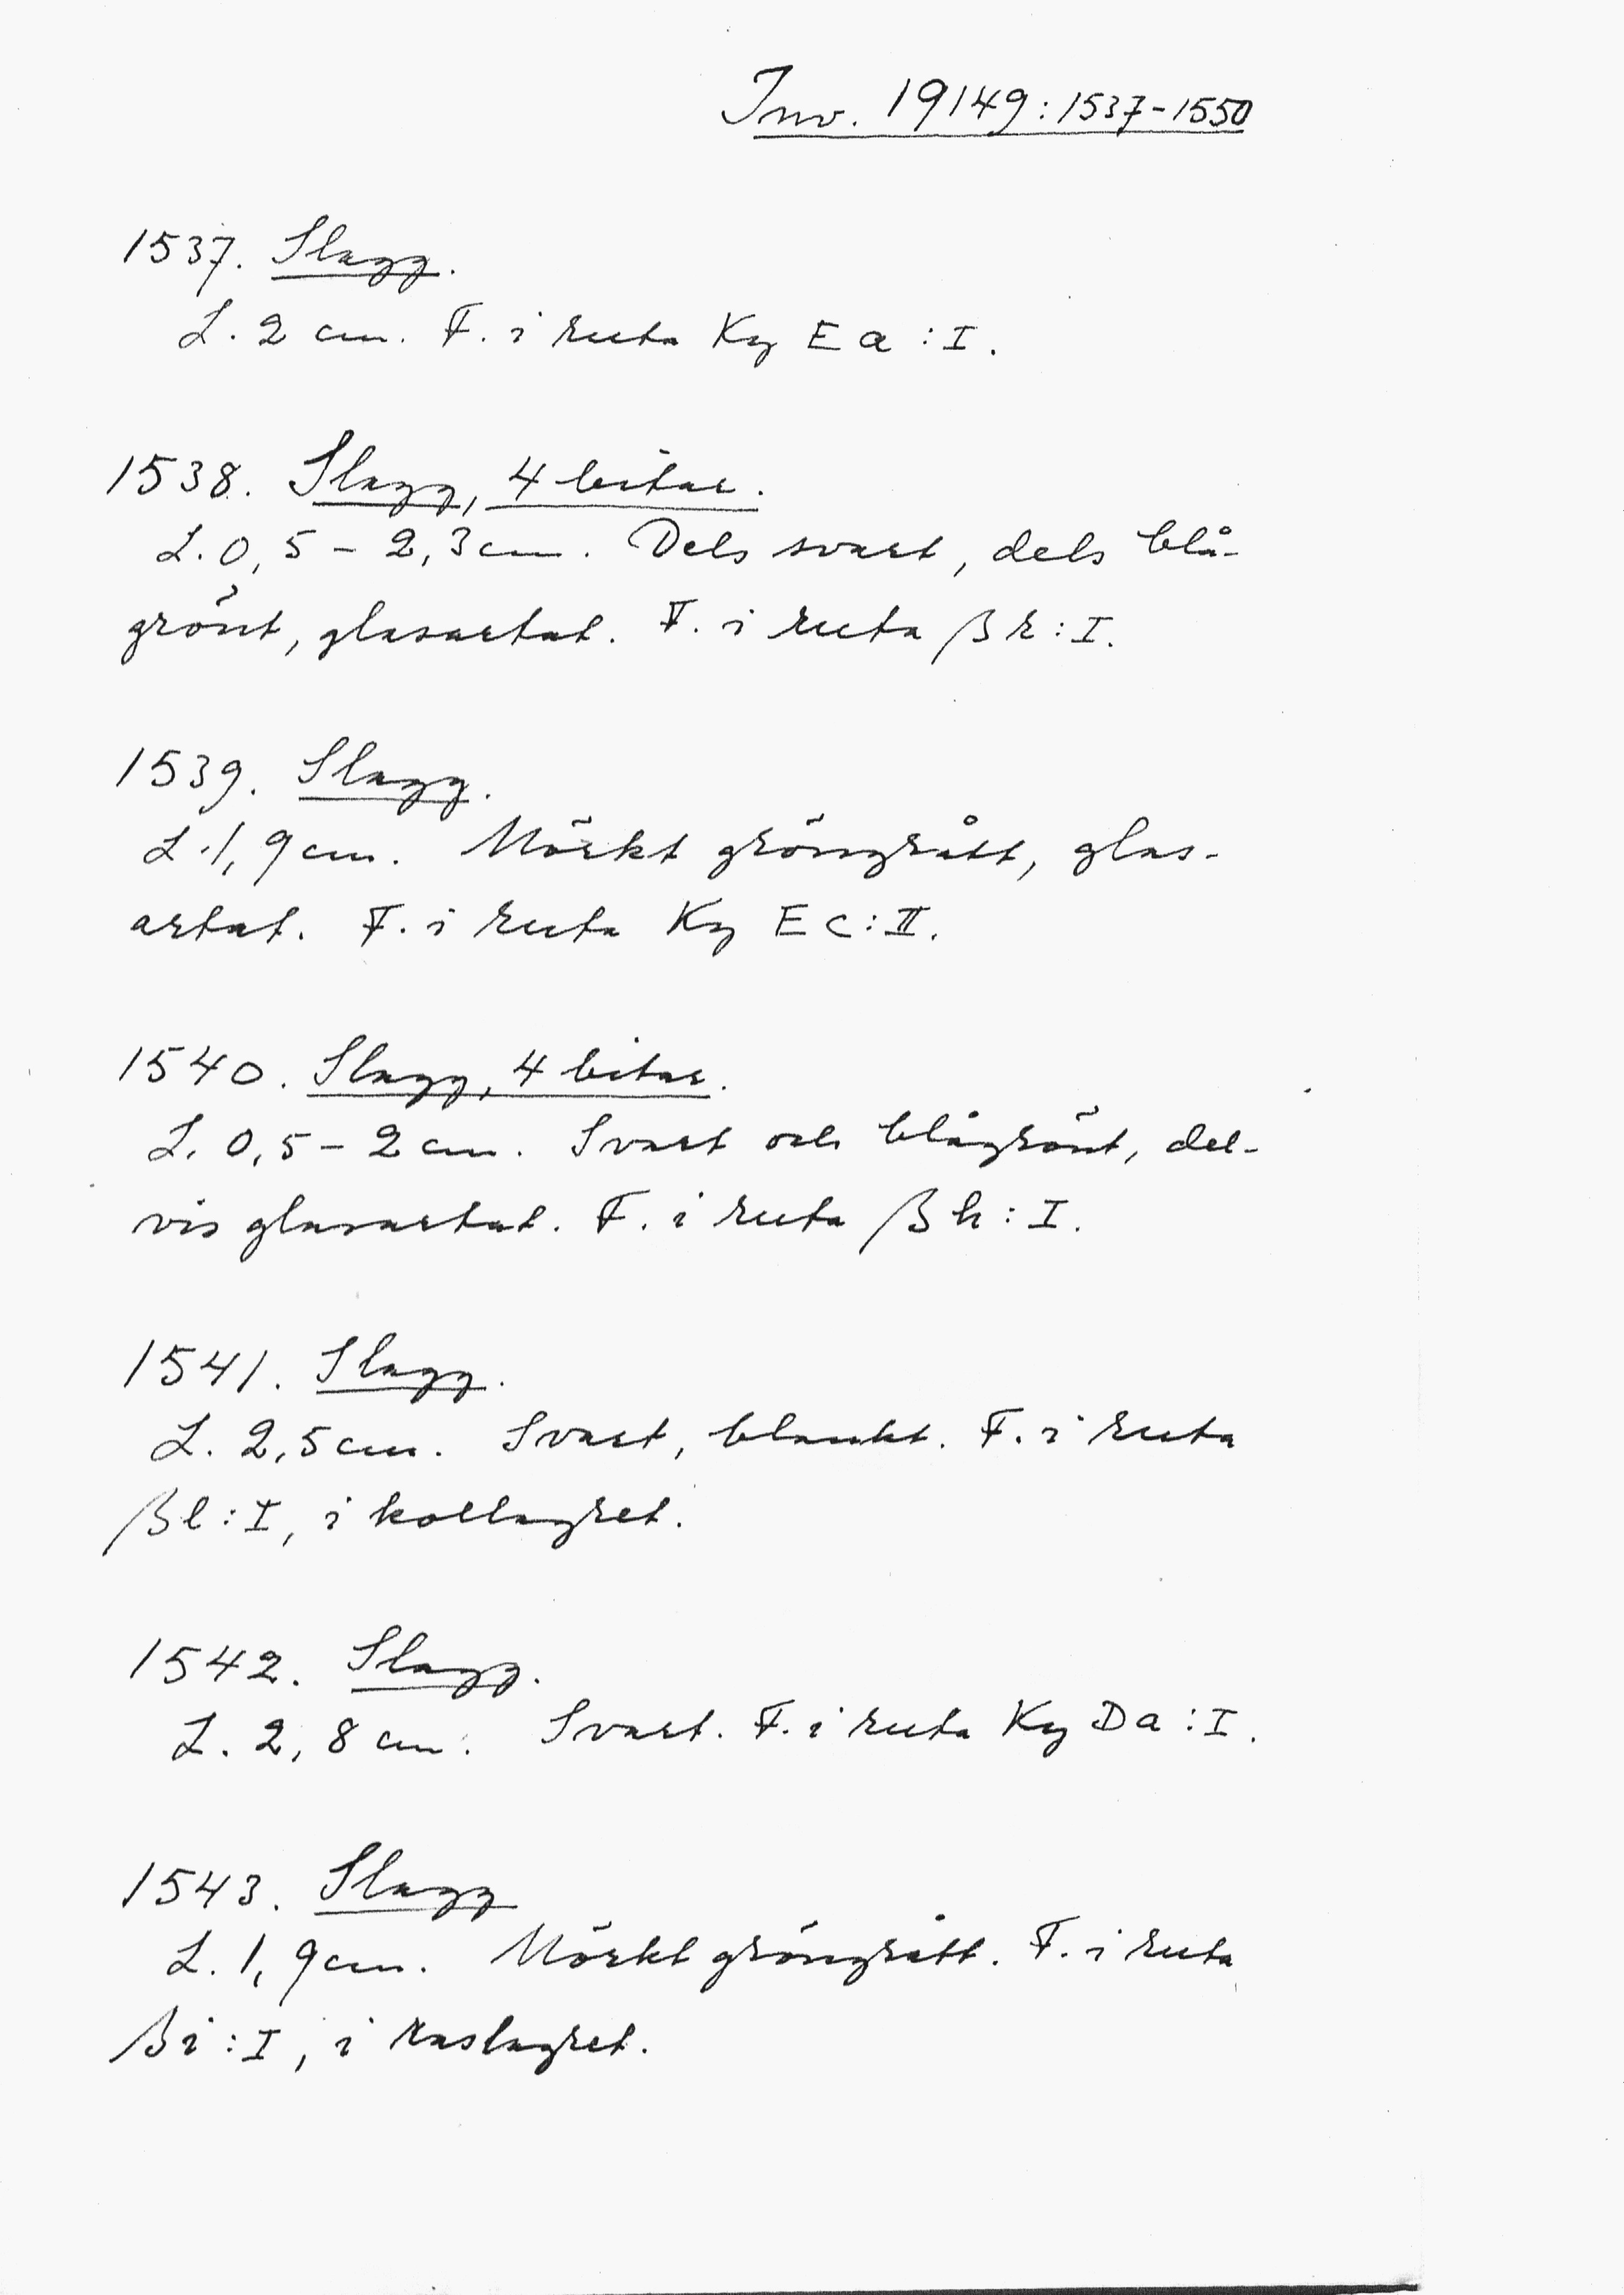 Inv. 19149:1537-1550
1537. Slagg.
L. 2 cm. F. i ruta Ky E a : I.
1538. Slagg, 4 bitar.
L. 0,5 - 2,3 cm. Dels svart, dels blå-
grönt, glasartat. F. i ruta β r : I.
1539. Slagg.
L. 1,9 cm. Mörkt gröngrått, glas-
artat. F. i ruta Ky E c : II.
1540. Slagg, 4 bitar.
L. 0,5 - 2 cm. Svart och blågrönt, del-
vis glasartat. F. i ruta β h : I.
1541. Slagg.
L. 2,5 cm. Svart, blankt. F. i ruta
β l : I, i kollagret.
1542. Slagg.
L. 2,8 cm. Svart. F. i ruta Ky D a : I.
1543. Slagg
L. 1,9 cm. Mörkt gröngrått. F. i ruta
β i : I, i raslagret.